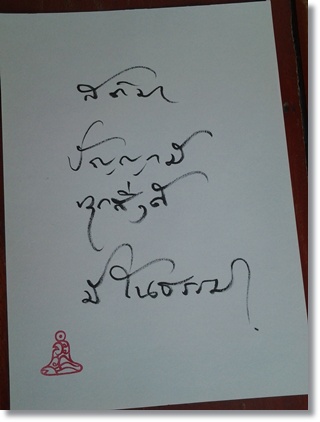 สติมา
ปัญญามี
ทุกสิ่งดี
มีในธรรม.